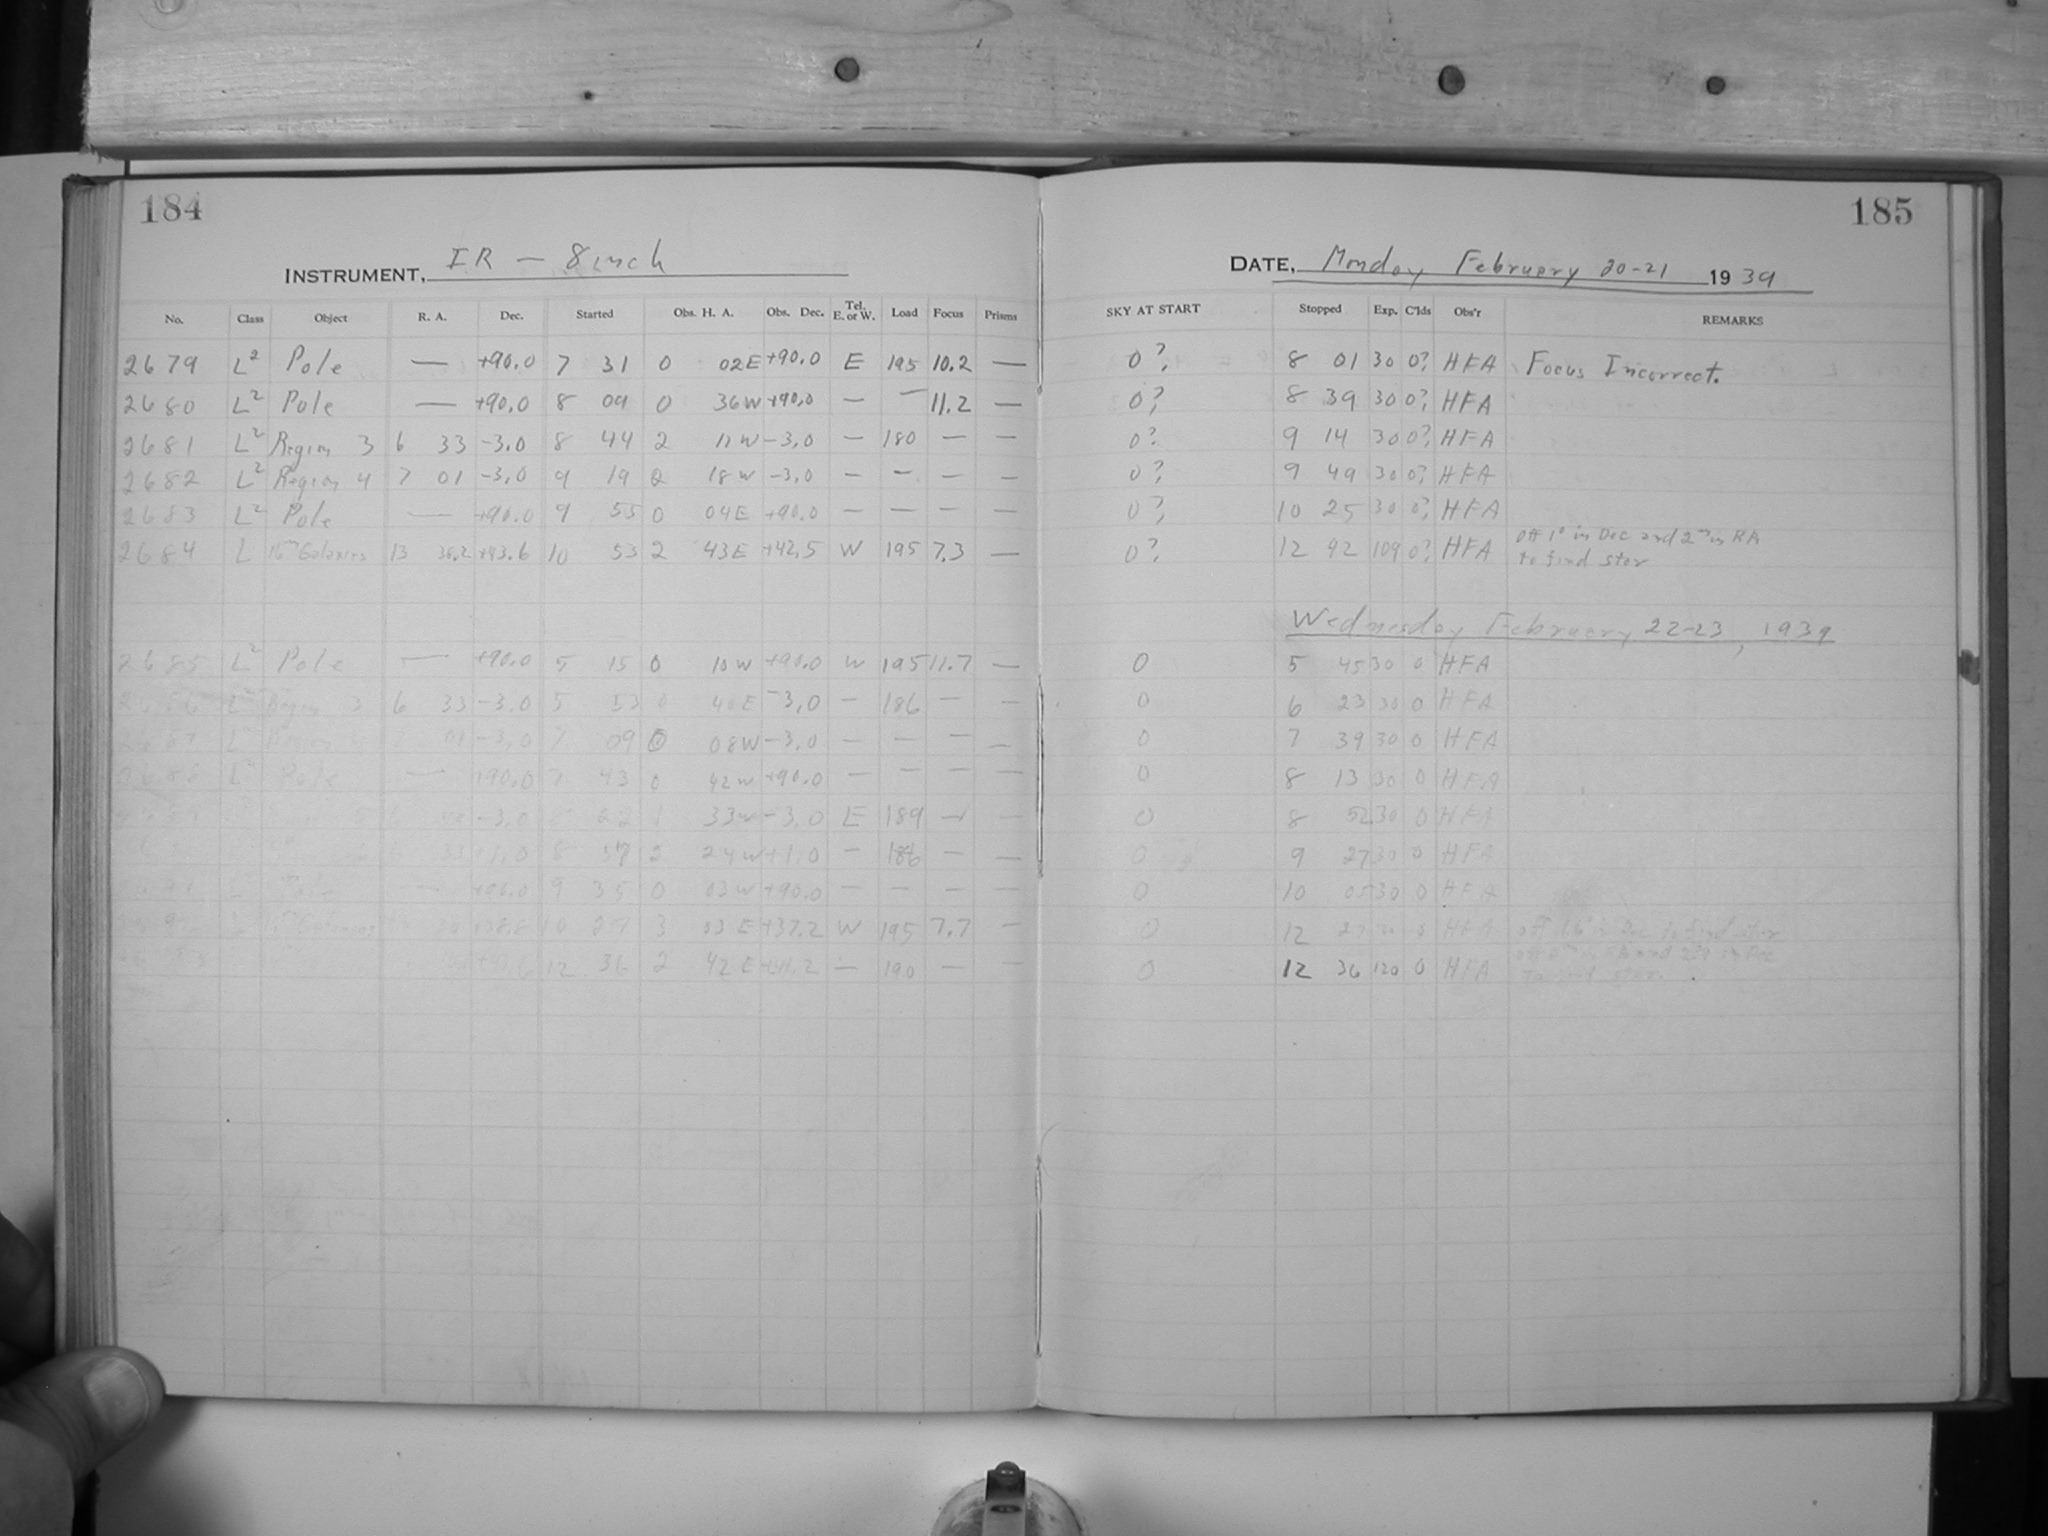 184
185
INSTRUMENT, IR — 8 inch
DATE, Monday February 20-21 1939
No. Class Object R. A. Dec. Started Obs. H. A. Obs. Dec. Tel. E. or W. Load Focus Prisms SKY AT START Stopped Exp. C'lds Obs'r REMARKS
2679 L² Pole — +90.0 7 31 0 02E +90.0 E 195 10.2 — 0? 8 01 30 0? HFA Focus Incorrect.
2680 L² Pole — +90.0 8 09 0 36W +90.0 — — 11.2 — 0? 8 39 30 0? HFA
2681 L² Region 3 6 33 -3.0 8 44 2 12W -3.0 — 180 — — 0? 9 14 30 0? HFA
2682 L² Region 4 7 01 -3.0 9 19 2 18W -3.0 — — — — 0? 9 49 30 0? HFA
2683 L² Pole — +90.0 9 55 0 04E +90.0 — — — — 0? 10 25 30 0? HFA
2684 L 16ᵐ Galaxies 13 38.2 +43.6 10 53 2 43E +42.5 W 195 7.3 — 0? 12 42 109 0? HFA off 1° in Dec and 2ᵐ in RA
to find star
Wednesday February 22-23, 1939
2685 L² Pole — +90.0 5 15 0 10W +90.0 W 195 11.7 — 0 5 45 30 0 HFA
L² Region 3 6 33 -3.0 5 53 0 40E -3.0 — 186 — — 0 6 23 30 0 HFA
L² -3.0 7 09 0 08W -3.0 — — — — 0 7 39 30 0 HFA
L² Pole — +90.0 7 43 0 42W +90.0 — — — — 0 8 13 30 0 HFA
-3.0 22 1 33W -3.0 E 189 — — 0 8 52 30 0 HFA
+1.0 8 57 2 24W +1.0 — 186 — — 0 9 27 30 0 HFA
Pole — +90.0 9 35 0 03W +90.0 — — — — 0 10 05 30 0 HFA
Galaxies 10 27 3 03E +37.2 W 195 7.7 — 0 12 27 0 HFA off in Dec to find star
12 36 2 42E — 190 — — 0 12 36 120 0 HFA
to find star.